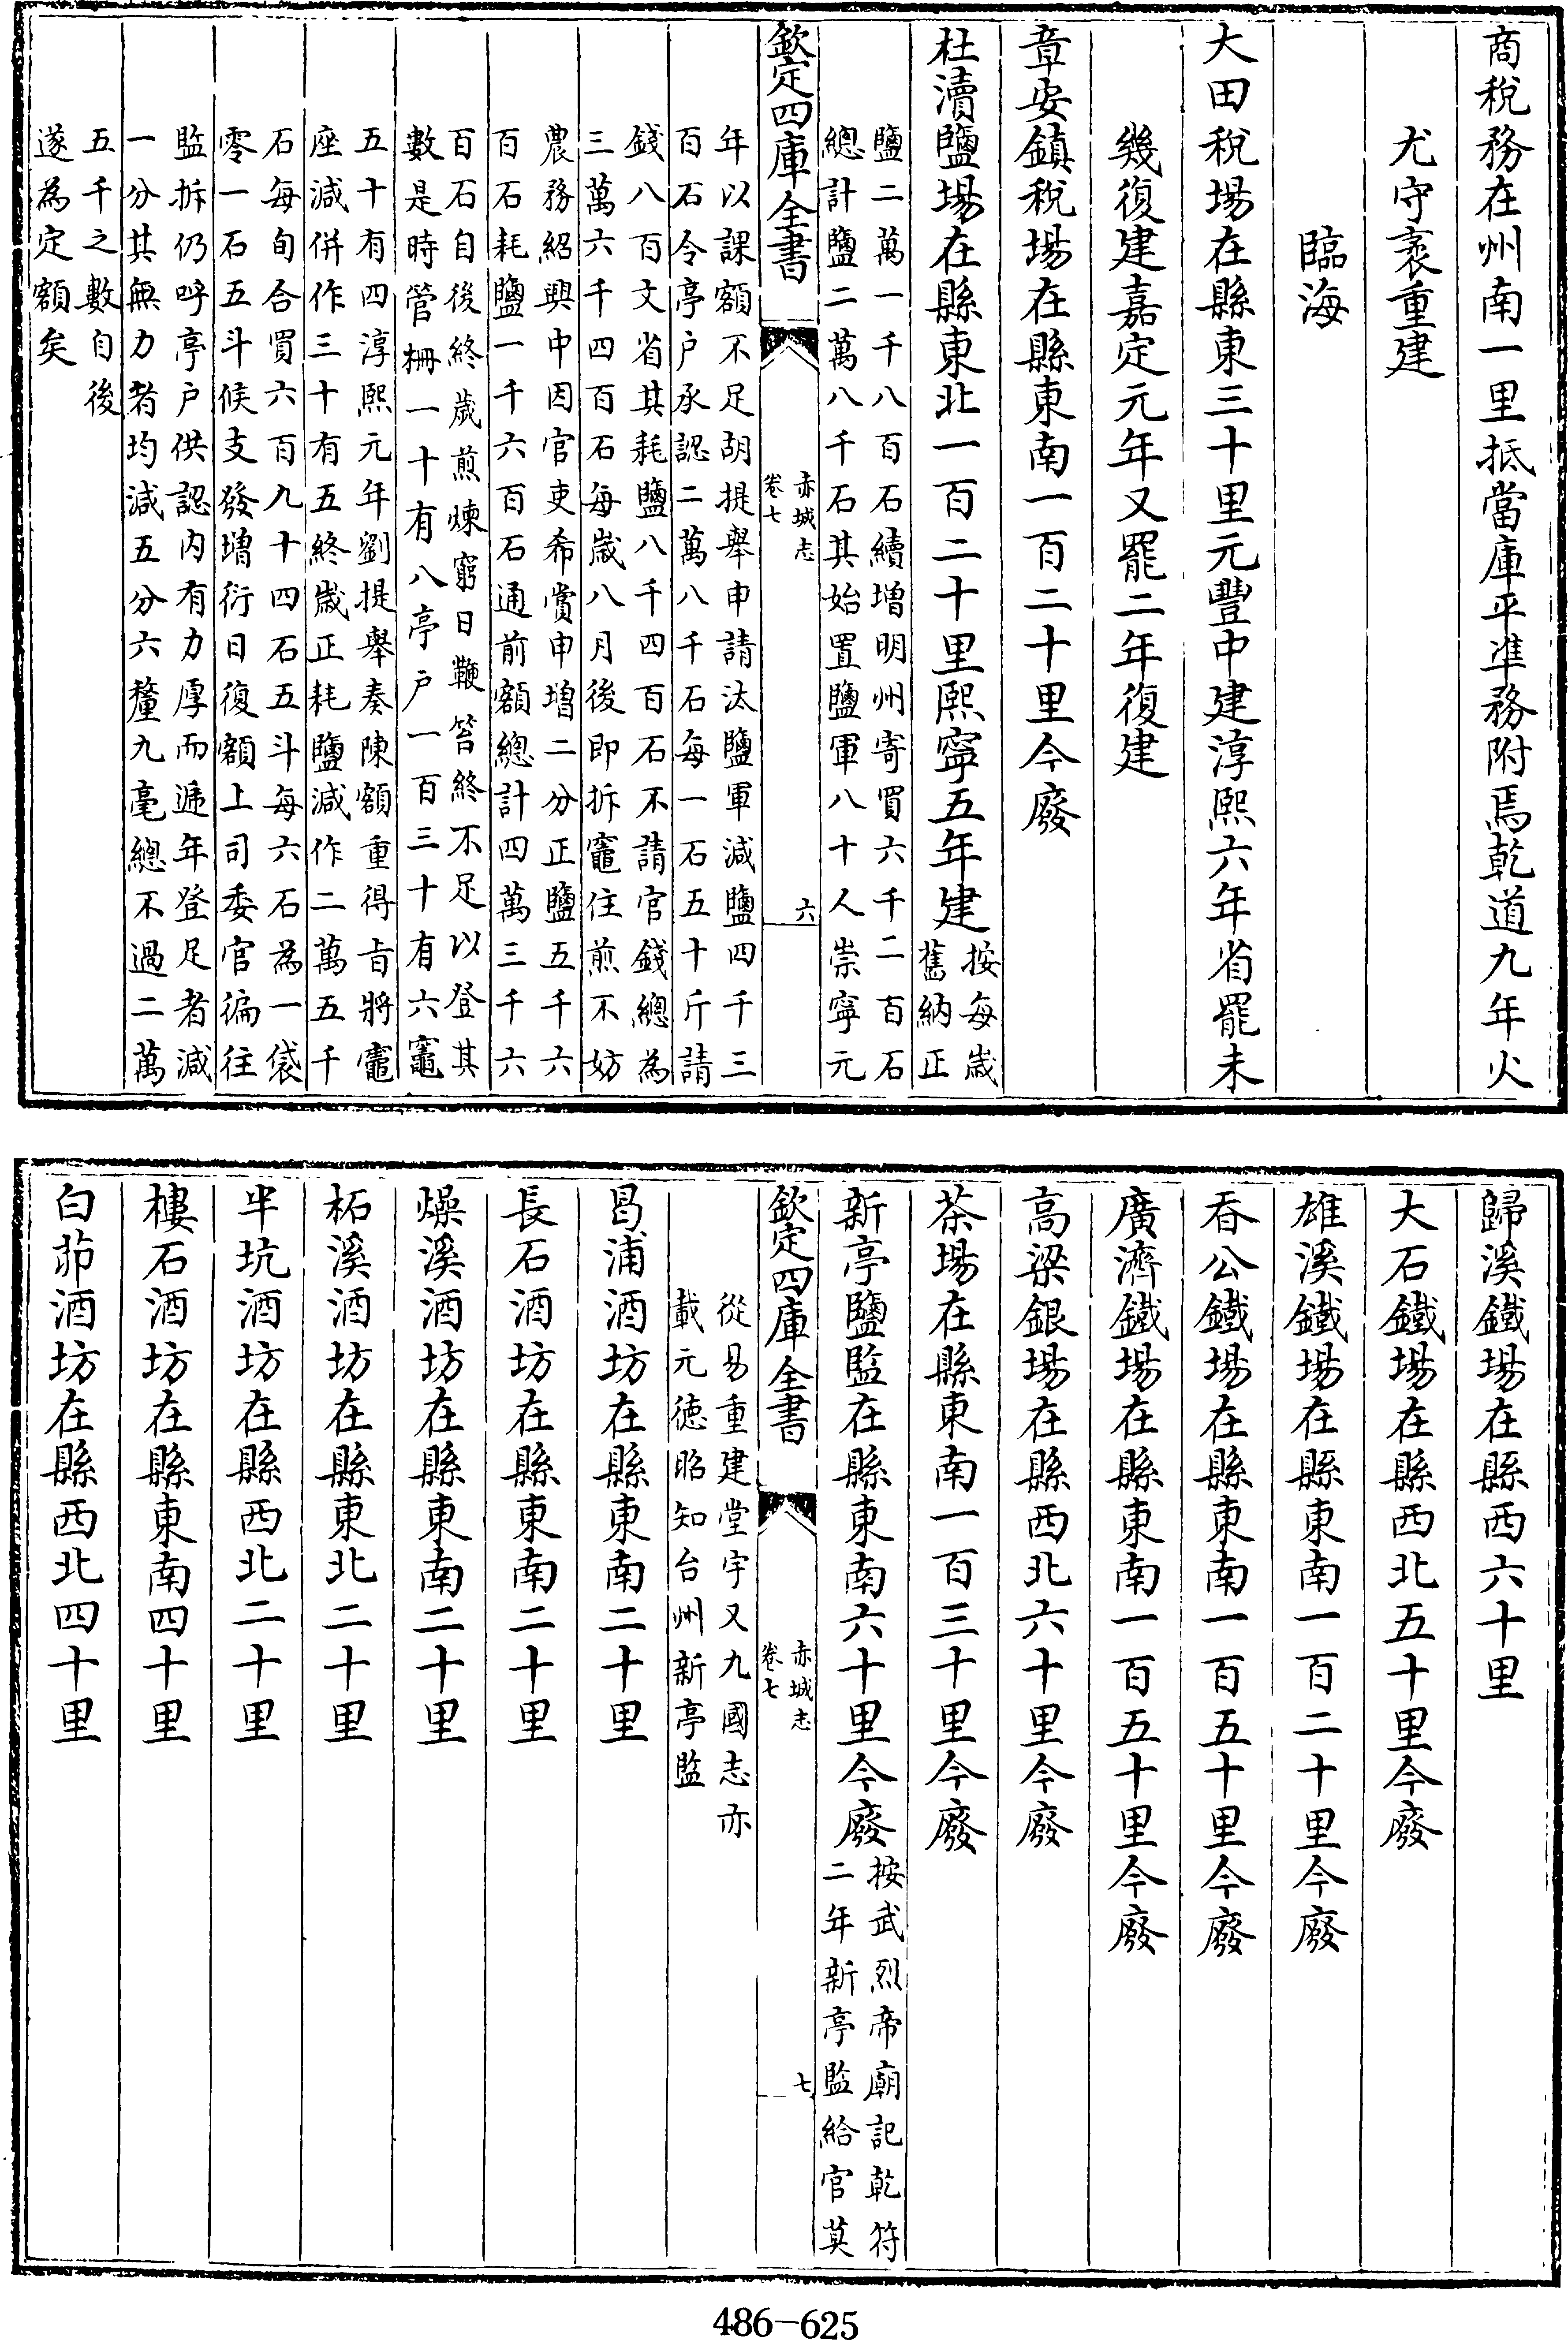 商稅務在州南一里抵當庫平準務附焉乾道九年火
尤守袤重建
臨海
大田稅場在縣東三十里元豐中建淳熙六年省罷未
幾復建嘉定元年又罷二年復建
章安鎮稅場在縣東南一百二十里今廢
杜瀆鹽場在縣東北一百二十里熙寧五年建
按每嵗
舊納正
鹽二萬一千八百石續増明州寄買六千二百石
總計鹽二萬八千石其始置鹽軍八十人崇寧元
欽定四庫全書
赤城志
卷七
六
年以課額不足胡提舉申請汰鹽軍減鹽四千三
百石令亭户承認二萬八千石每一石五十斤請
錢八百文省其耗鹽八千四百石不請官錢總為
三萬六千四百石每嵗八月後即拆竈住煎不妨
農務紹興中因官吏希賞申増二分正鹽五千六
百石耗鹽一千六百石通前額總計四萬三千六
百石自後終歲煎煉窮日鞭笞終不足以登其
數是時管柵一十有八亭户一百三十有六竈
五十有四淳熙元年劉提舉奏陳額重得㫖將竈
座減併作三十有五終嵗正耗鹽減作二萬五千
石每旬合買六百九十四石五斗每六石為一袋
零一石五斗候支發増衍日復額上司委官徧往
監拆仍呼亭户供認内有力厚而遞年登足者減
一分其無力者均減五分六釐九毫總不過二萬
五千之數自後
遂為定額矣
歸溪鐵場在縣西六十里
大石鐵場在縣西北五十里今廢
雄溪鐵場在縣東南一百二十里今廢
吞公鐵場在縣東南一百五十里今廢
廣濟鐵場在縣東南一百五十里今廢
高梁銀場在縣西北六十里今廢
茶場在縣東南一百三十里今廢
新亭鹽監在縣東南六十里今廢
按武烈帝廟記乾符
二年新亭監給官莫
欽定四庫全書
赤城志
卷七
七
從易重建堂宇又九國志亦
載元徳昭知台州新亭監
昌浦酒坊在縣東南二十里
長石酒坊在縣東南二十里
燥溪酒坊在縣東南二十里
柘溪酒坊在縣東北二十里
半坑酒坊在縣西北二十里
樓石酒坊在縣東南四十里
白茆酒坊在縣西北四十里
486-625